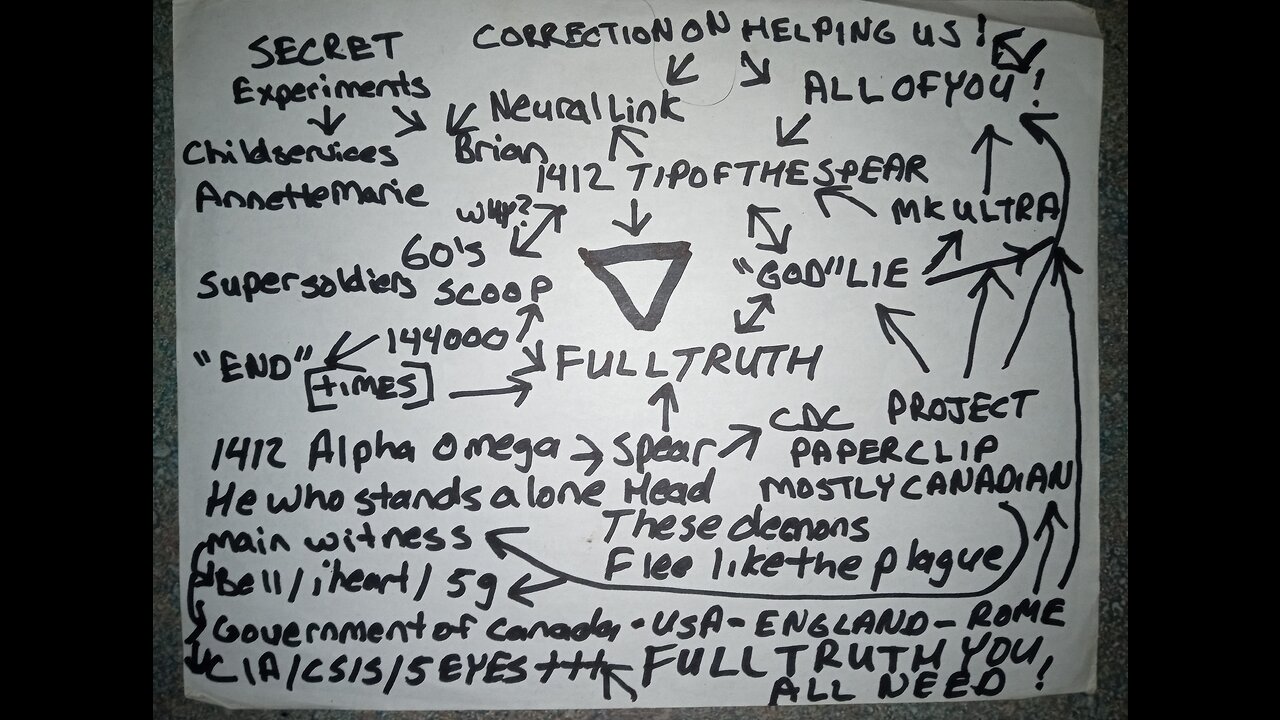 SECRET
Experiments
CORRECTION ON HELPING US!
ALL OF YOU!
Neural Link
Childservices
Brian
AnnetteMarie
1412 TIP OF THE SPEAR
why?
MK ULTRA
60's
SCOOP
Supersoldiers
"GOD" LIE
144000
"END"
[TIMES]
FULL TRUTH
PROJECT
PAPERCLIP
CDC
1412 Alpha Omega → Spear
He who stands alone Head
MOSTLY CANADIAN
main witness
These demons
Flee like the plague
Bell/iheart/5g
Government of Canada - USA - ENGLAND - ROME
CIA/CSIS/5 EYES +++
FULL TRUTH YOU
ALL NEED!